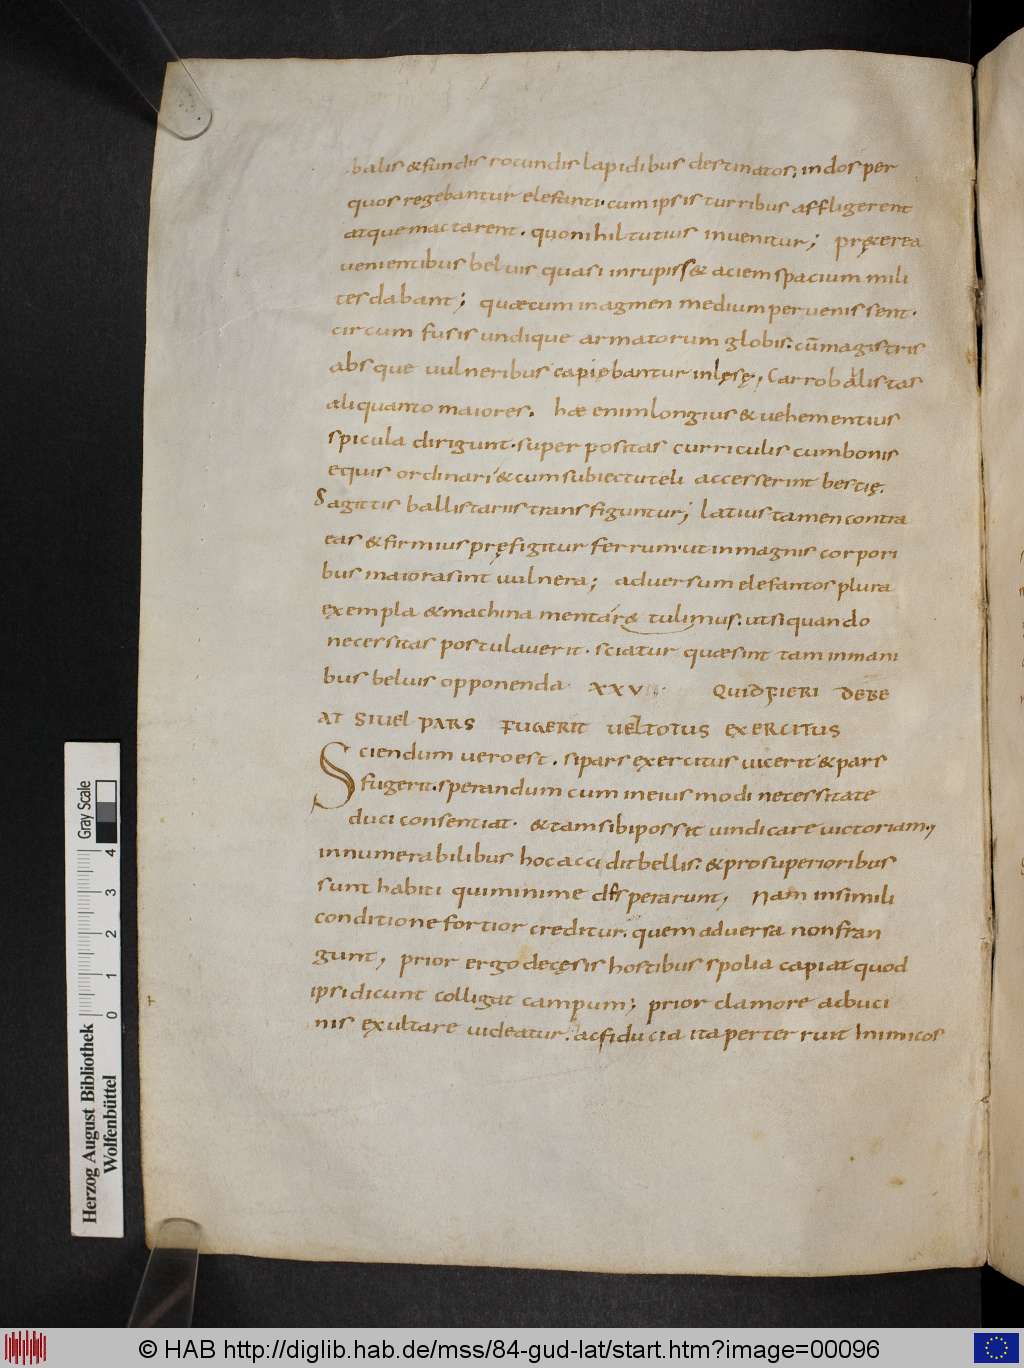 balis & fundis rotundis lapidibus destinatos; indos per
quos regebantur elefanti. cum ipsis turribus affligerent
atque mactarent. quo nihil tutius invenitur; pręterea
venientibus beluis quasi inrupiss& aciem spacium mili
tes dabant; quæ cum in agmen medium pervenissent.
circumfusis undique armatorum globis. cū magistris
absque vulneribus capiębantur inlęsę, Carrobalistas
aliquanto maiores. hæ enim longius & vehementius
spicula dirigunt. superpositas curriculis cum bonis
equis ordinari & cum sub iectu teli accesserint bestię.
Sagittis ballistariis transfiguntur; latius tamen contra
eas & firmius pręfigitur ferrum. ut in magnis corpori
bus maiora sint vulnera; adversum elefantos plura
exempla & machinamenta r& tulimus. ut si quando
necessitas postulaverit. sciatur quæ sint tam inmani
bus beluis opponenda. XXV QUID FIERI DEBE
AT SI VEL PARS FUGERIT VEL TOTUS EXERCITUS
Sciendum vero est. si pars exercitus vicerit & pars
fugerit. sperandum cum in eiusmodi necessitate
duci consentiat. & tam sibi possit vindicare victoriam;
innumerabilibus hoc accidit bellis. & pro superioribus
sunt habiti qui minime desperarunt, Nam in simili
conditione fortior creditur. quem adversa non fran
gunt, prior ergo de cęsis hostibus spolia capiat quod
ipsi dicunt colligat campum; prior clamore ac buci
nis exultare videatur. ac fiducia ita perterruit inimicos
Herzog August Bibliothek
Wolfenbüttel
0 1 2 3 4
Gray Scale
© HAB http://diglib.hab.de/mss/84-gud-lat/start.htm?image=00096